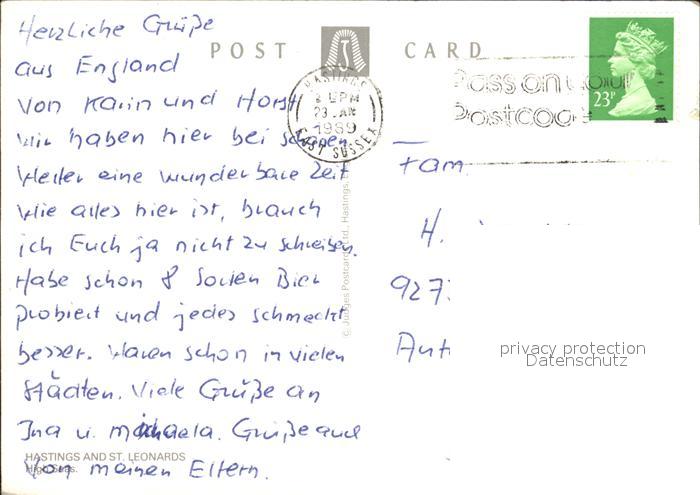 Herzliche Grüße
aus England
von Karin und Horst
Wir haben hier bei schönem
Wetter eine wunderbare Zeit
Wie alles hier ist, brauch
ich Euch ja nicht zu schreiben.
Habe schon 8 Sorten Bier
probiert und jedes schmeckt
besser. Waren schon in vielen
Städten. Viele Grüße an
Ina u. Michaela. Grüße auch
von meinen Eltern.
HASTINGS AND ST. LEONARDS
POST CARD
© Judges Postcards Ltd., Hastings,
HASTINGS
PM
1989
EAST SUSSEX
Pass on your
Postcode
23P
Fam
H.
927
privacy protection
Datenschutz